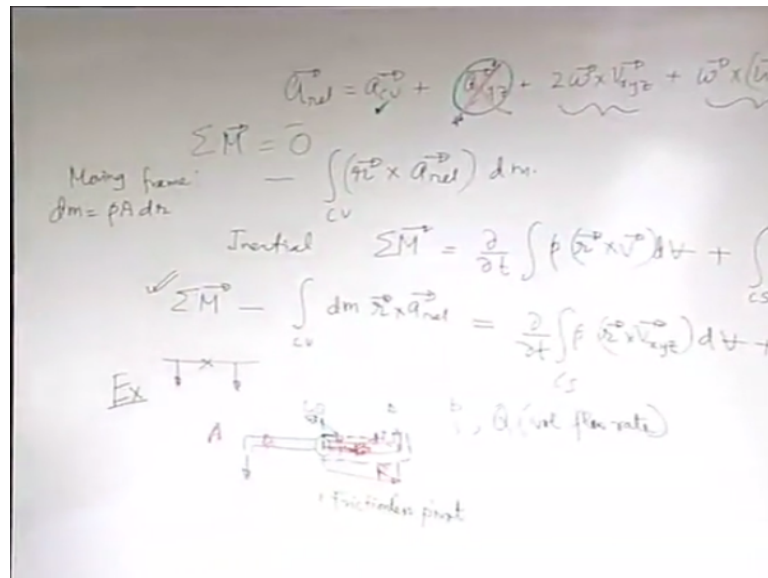 a⃗rel = a⃗cv + a⃗xyz + 2ω⃗ × V⃗xyz + ω⃗ × (
ΣM⃗ = 0
Moving frame: − ∫CV (r⃗ × a⃗rel) dm.
dm = ρA dr
Inertial ΣM⃗ = ∂/∂t ∫ ρ (r⃗ × V⃗) dV + ∫CS
ΣM⃗ − ∫CV dm r⃗ × a⃗rel = ∂/∂t ∫CS ρ (r⃗ × V⃗xyz) dV +
Ex
A , Q (vol flow rate)
Frictionless pivot